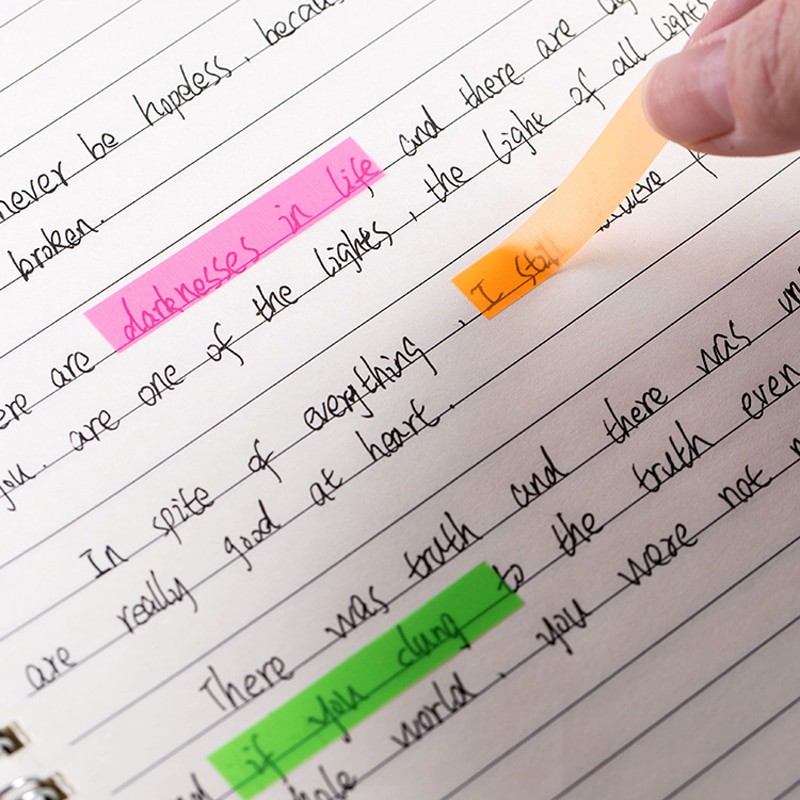 never be hopeless, because
broken.
are darknesses in life and there are
you are one of the lights, the light of all lights
In spite of everything, I still believe
are really good at heart.
There was truth and there was
if you clung to the truth even
world, you were not